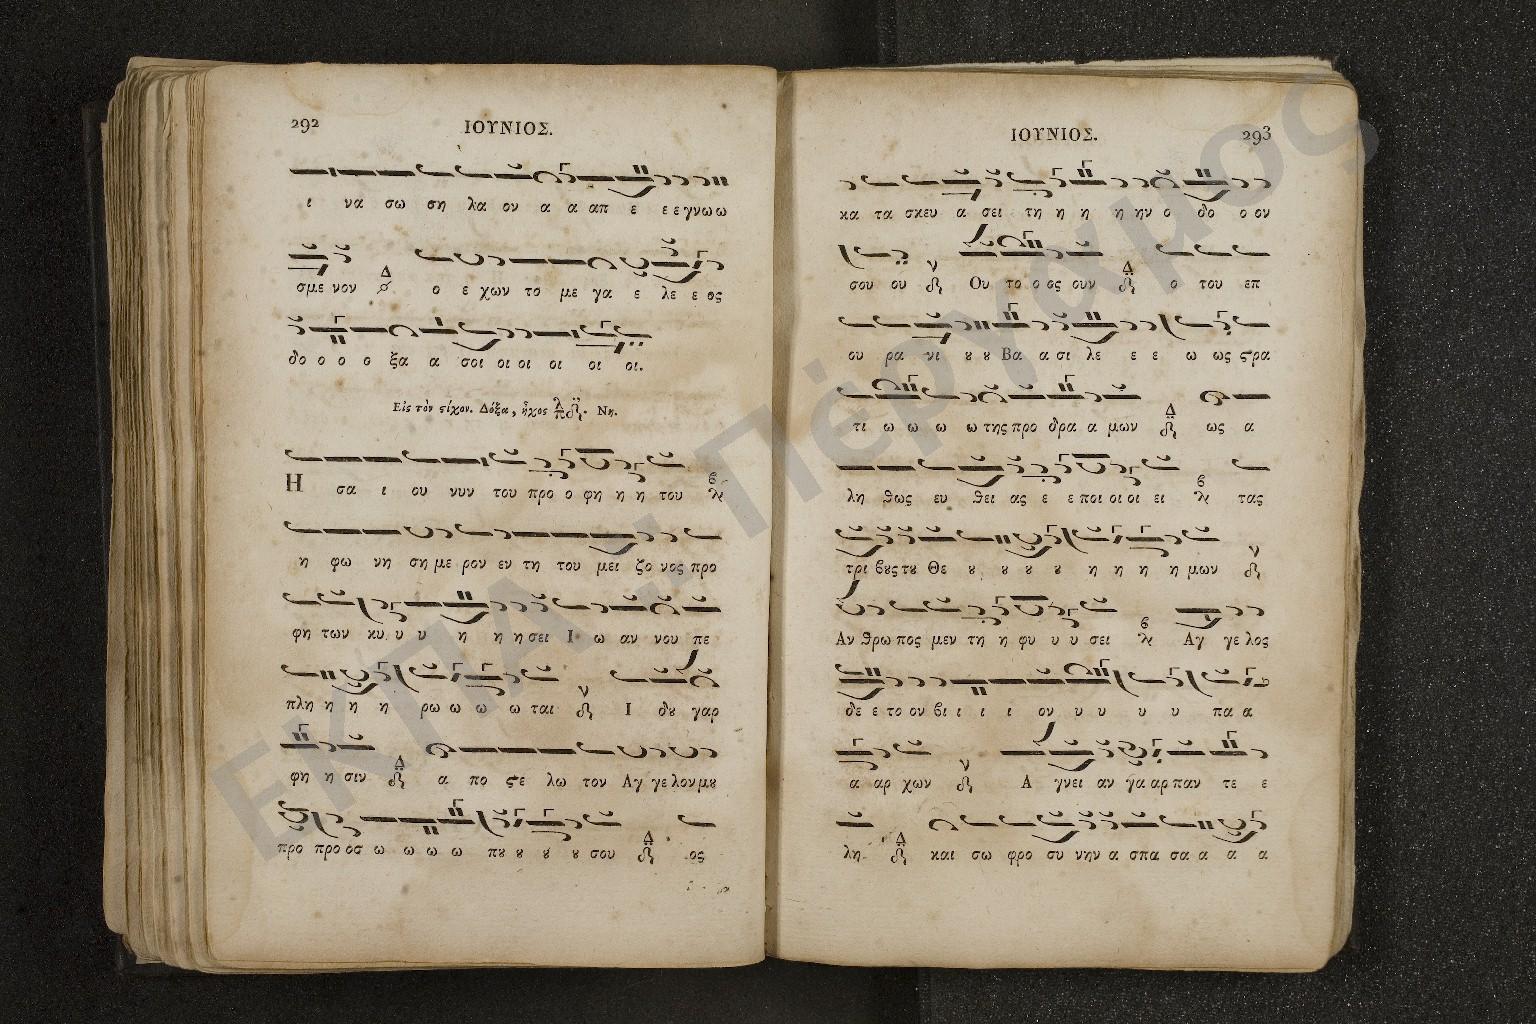 292 ΙΟΥΝΙΟΣ.
ι να σω ση λα ον α α απ ε ε ε γνω ω
σμε νον Δ ο ε χων το με γα ε λε ε ος
δο ο ο ο ξα α σοι οι οι οι οι οι.
Εἰς τὸν ϛίχον. Δόξα, ἦχος λ π Νη.
Η σα ι ου νυν του προ ο φη η η του
η φω νη ση με ρον εν τη του μει ζο νος προ
φη των κυ υ υ η η η σει Ι ω αν νου πε
πλη η η η ρω ω ω ω ται ν Ι δȣ γαρ
φη η σιν Δ α πο ϛε λω τον Αγ γε λον μȣ
προ προ οσ ω ω ω ω πȣ ȣ ȣ ȣ σου Δ ος
ΙΟΥΝΙΟΣ. 293
κα τα σκευ α σει τη η η η ην ο δο ο ον
σου ου ν Ου το ο ος ουν Δ ο του επ
ου ρα νι ȣ ȣ Βα α σι λε ε ε ω ως ϛρα
τι ω ω ω ω της προ δρα α μων Δ ως α
λη θως ευ θει ας ε ε ποι οι οι ει τας
τρι βȣς τȣ Θε ȣ ȣ ȣ ȣ η η η η μων ν
Αν θρω πος μεν τη η φυ υ υ σει Αγ γε λος
δε ε το ον βι ι ι ι ον υ υ υ υ πα α
α αρ χων ν Α γνει αν γα αρ παν τε ε
λη Δ και σω φρο συ νην α σπα σα α α α
ΕΚΠΑ :: Πέργαμος